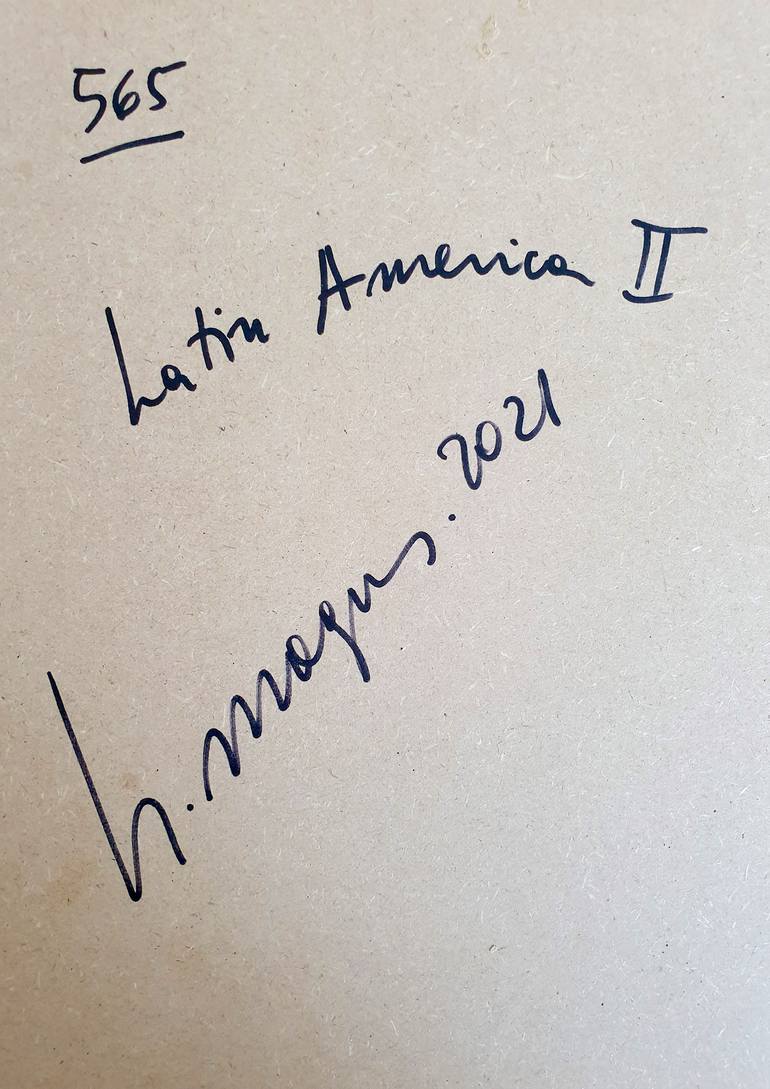 565
Latin America II
h. magus. 2021